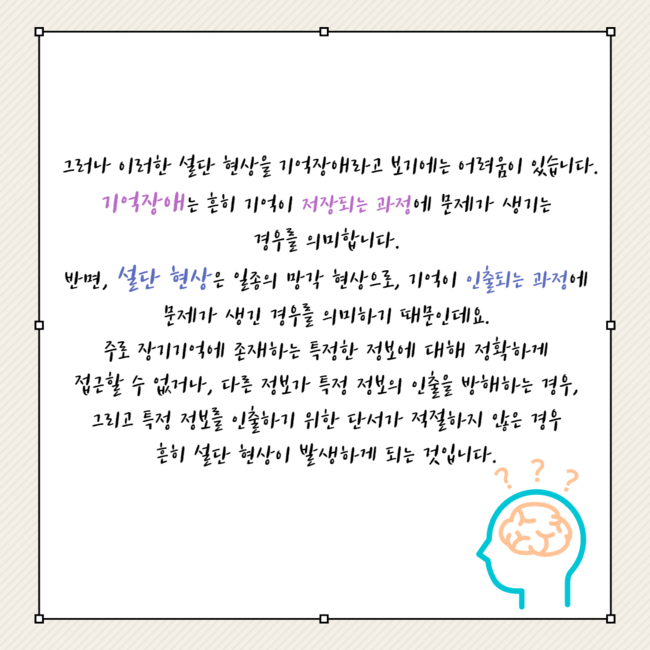 그러나 이러한 설단 현상을 기억장애라고 보기에는 어려움이 있습니다.
기억장애는 흔히 기억이 저장되는 과정에 문제가 생기는
경우를 의미합니다.
반면, 설단 현상은 일종의 망각 현상으로, 기억이 인출되는 과정에
문제가 생긴 경우를 의미하기 때문인데요.
주로 장기기억에 존재하는 특정한 정보에 대해 정확하게
접근할 수 없거나, 다른 정보가 특정 정보의 인출을 방해하는 경우,
그리고 특정 정보를 인출하기 위한 단서가 적절하지 않은 경우
흔히 설단 현상이 발생하게 되는 것입니다.
? ? ?